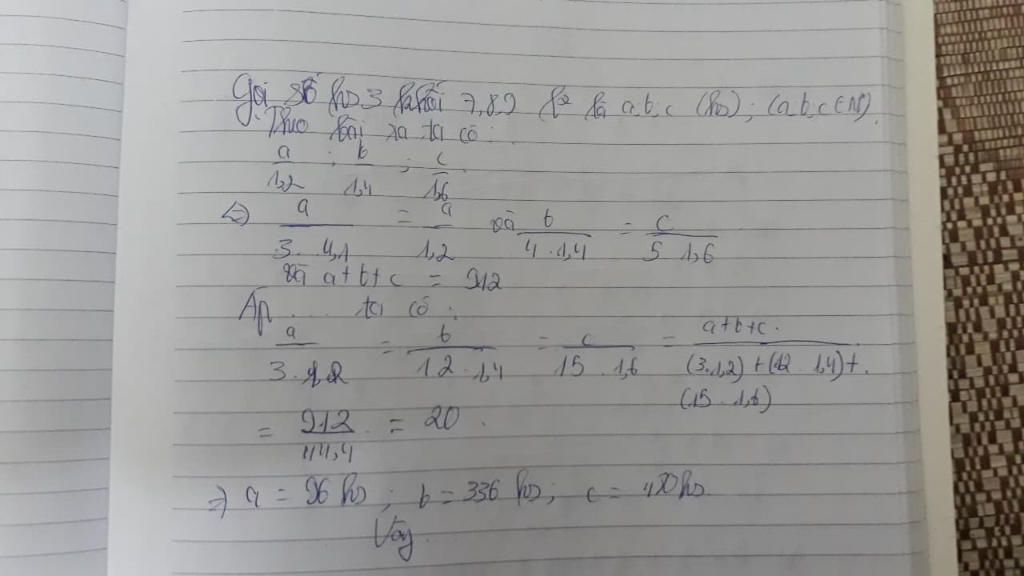 Gọi số hs 3 khối 7,8,9 lần lượt là a, b, c (hs); (a, b, c ∈ N)
Theo bài ra ta có:
a/1,2 ; b/1,4 ; c/1,6
⇔ a/3.4,1 = a/1,2 và b/4.1,4 = c/5.1,6
và a+b+c = 912
Áp .... ta có:
a/3.1,2 = b/12.1,4 = c/15.1,6 = a+b+c./(3.1,2)+(12.1,4)+.(15.1,6)
= 912/44,4 = 20.
⇒ a = 96 hs ; b = 336 hs ; c = 480 hs
Vậy.